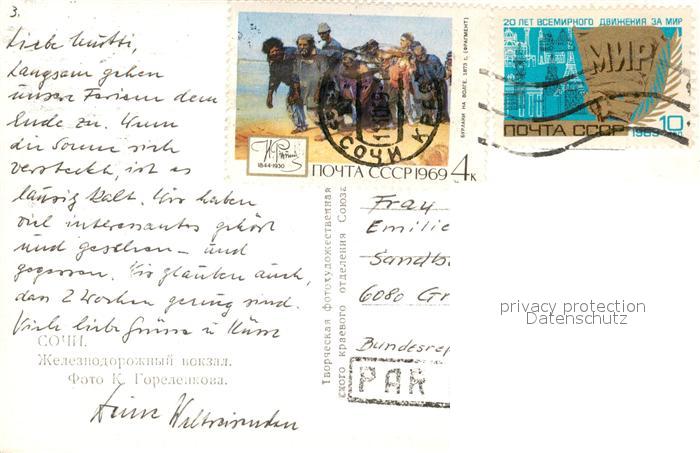 3.
Liebe Mutti,
langsam gehen
unsere Ferien dem
Ende zu. Wenn
die Sonne sich
versteckt, ist es
lausig kalt. Wir haben
viel interessantes gehört
und gesehen – und
gegessen. Wir glauben auch,
dass 2 Wochen genug sind.
Viele liebe Grüsse u. Küsse
СОЧИ.
Железнодорожный вокзал.
Фото К. Гореленкова.
Deine Weltreisenden
Творческая фотохудожественная
ского краевого отделения Союза
БУРЛАКИ НА ВОЛГЕ. 1873 г. (ФРАГМЕНТ)
И. Репин
1844-1930
ПОЧТА СССР 1969 4к
СОЧИ
20 ЛЕТ ВСЕМИРНОГО ДВИЖЕНИЯ ЗА МИР
МИР
ПОЧТА СССР 1969 10
Frau
Emilie
Sandb
6080 Gr
Bundesrep
PAR
privacy protection
Datenschutz